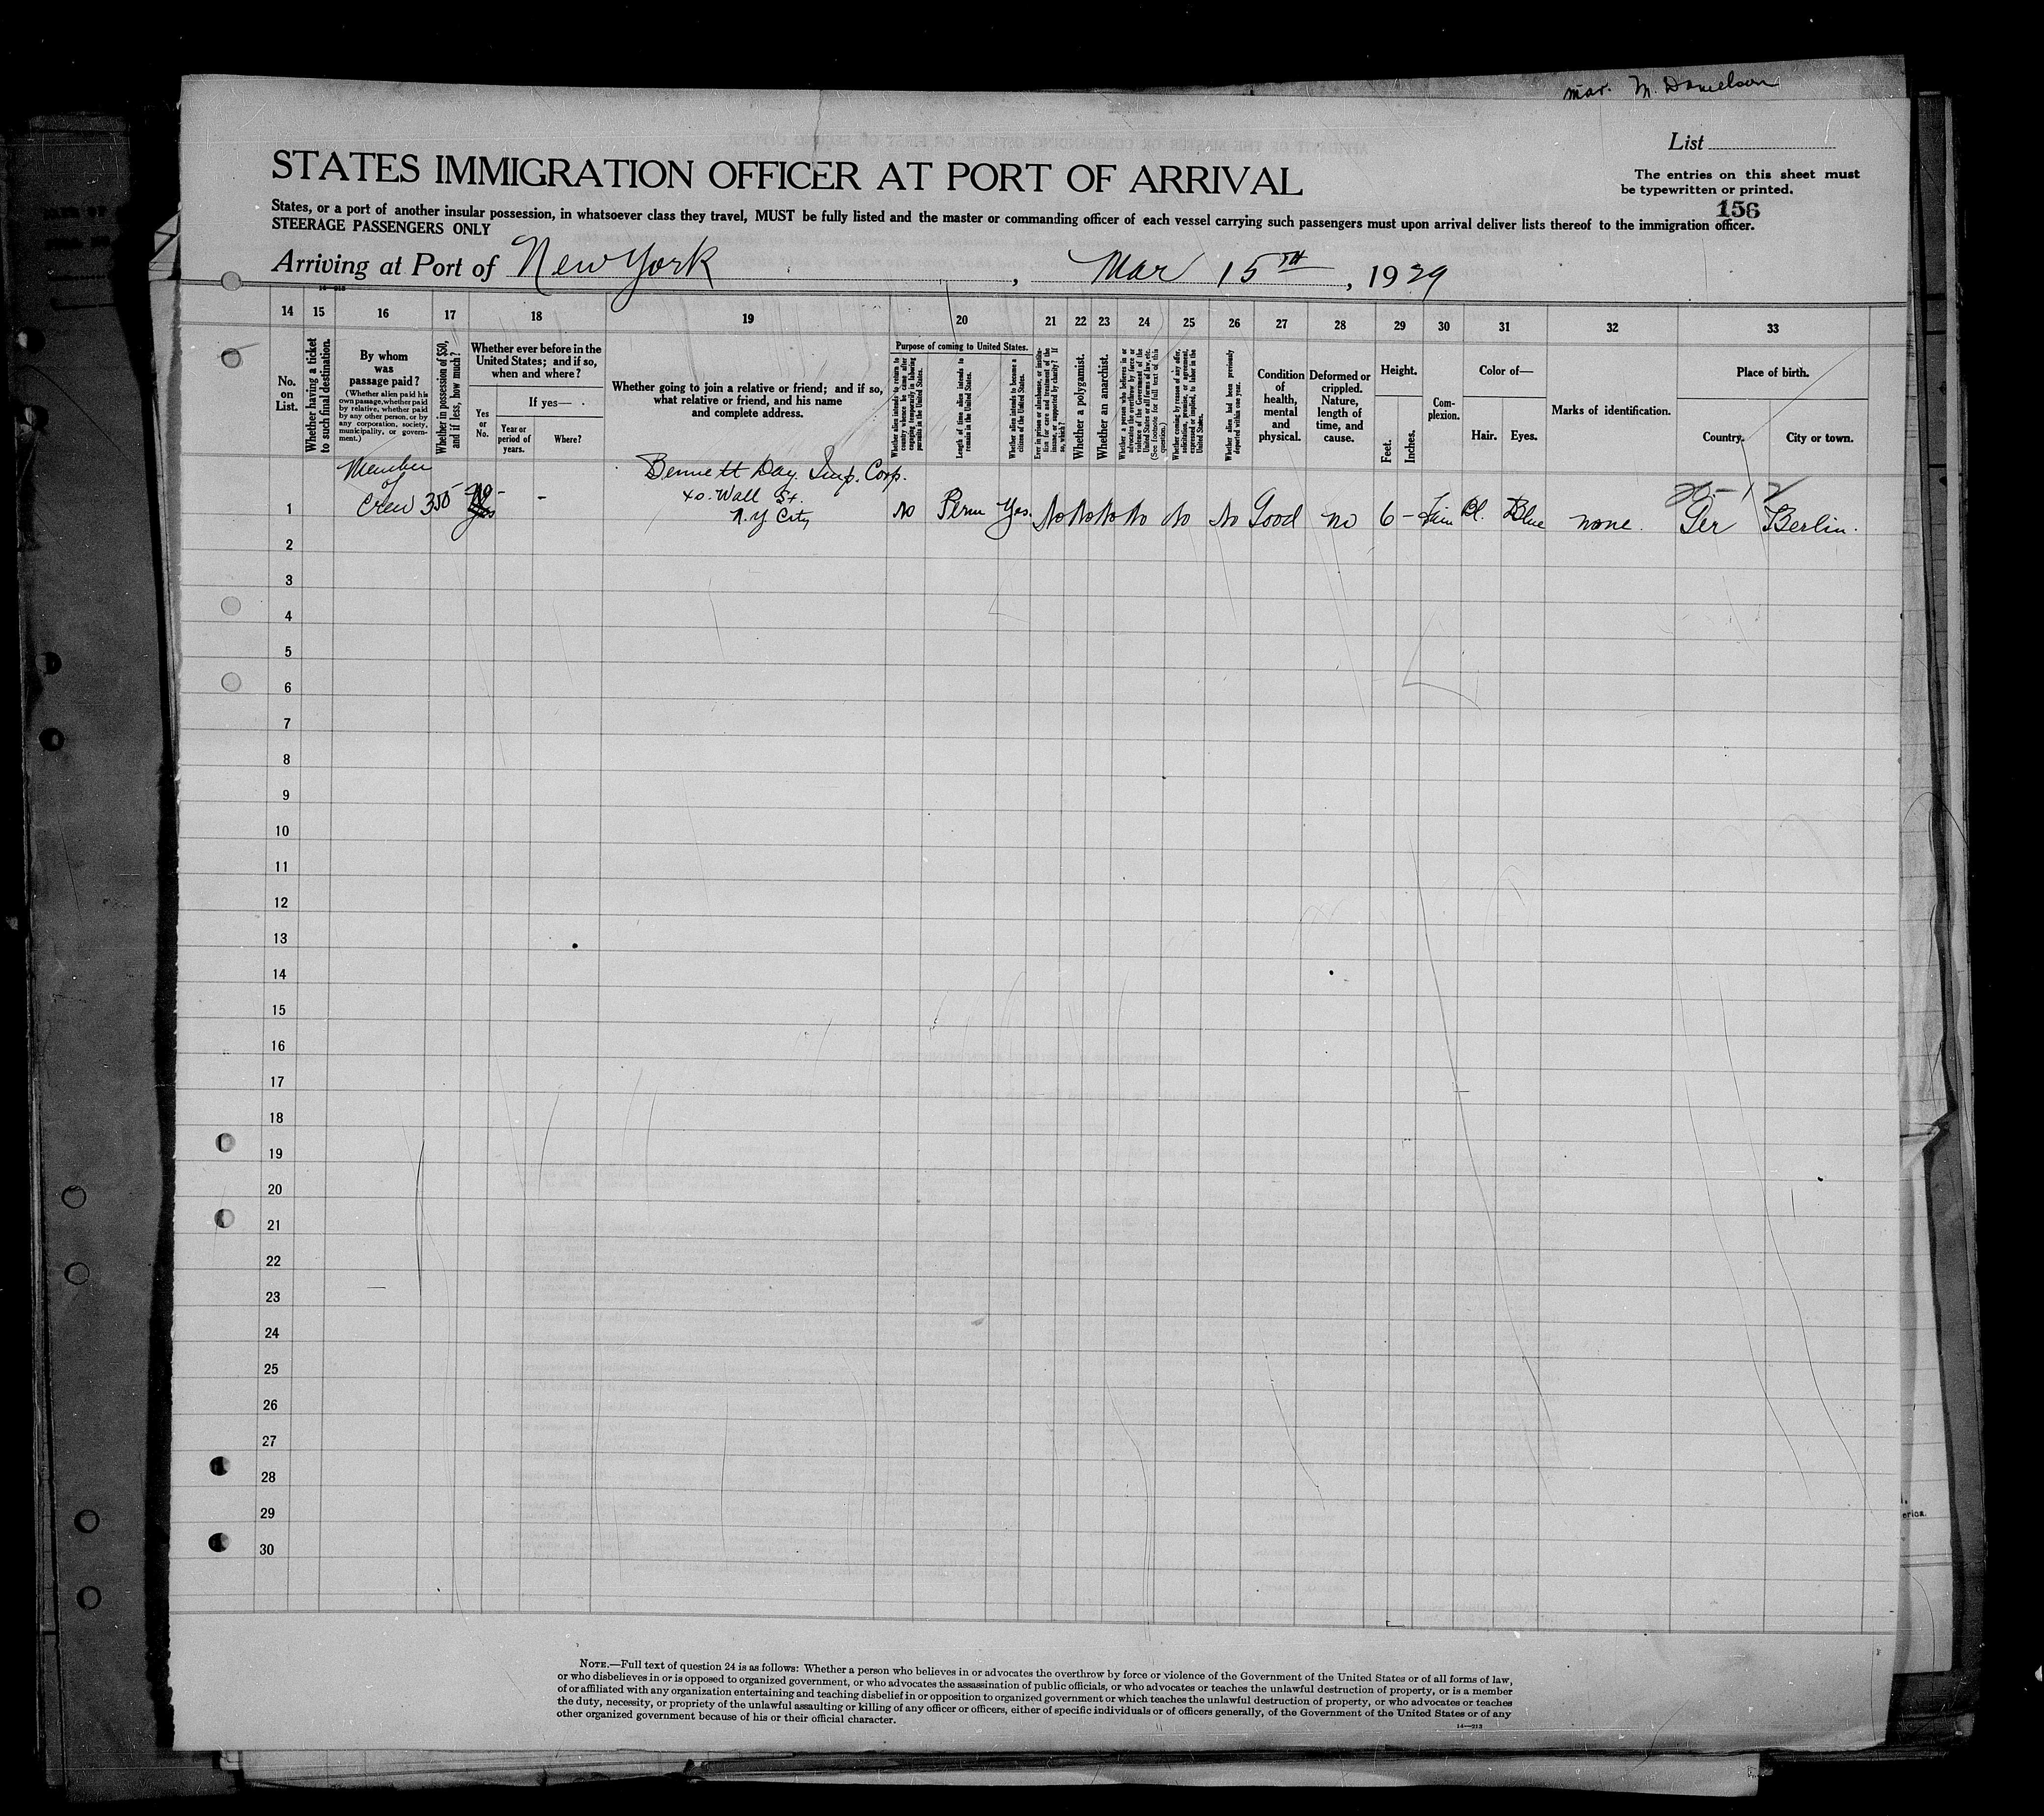 mar. M. Danielson
List
STATES IMMIGRATION OFFICER AT PORT OF ARRIVAL
The entries on this sheet must
be typewritten or printed.
156
States, or a port of another insular possession, in whatsoever class they travel, MUST be fully listed and the master or commanding officer of each vessel carrying such passengers must upon arrival deliver lists thereof to the immigration officer.
STEERAGE PASSENGERS ONLY
Arriving at Port of New York, Mar 15TH, 1929
14 15 16 17 18 19 20 21 22 23 24 25 26 27 28 29 30 31 32 33
No. on List.
Whether having a ticket to such final destination.
By whom was passage paid?
(Whether alien paid his own passage, whether paid by relative, whether paid by any other person, or by any corporation, society, municipality, or government.)
Whether in possession of $50, and if less, how much?
Whether ever before in the United States; and if so, when and where?
Yes or No.
If yes—
Year or period of years.
Where?
Whether going to join a relative or friend; and if so, what relative or friend, and his name and complete address.
Purpose of coming to United States.
Whether alien intends to return to country whence he came after engaging temporarily in laboring pursuits in the United States.
Length of time alien intends to remain in the United States.
Whether alien intends to become a citizen of the United States.
Ever in prison or almshouse, or institution for care and treatment of the insane, or supported by charity? If so, which?
Whether a polygamist.
Whether an anarchist.
Whether a person who believes in or advocates the overthrow by force or violence of the Government of the United States or all forms of law, etc. (See footnote for full text of this question.)
Whether coming by reason of any offer, solicitation, promise, or agreement, expressed or implied, to labor in the United States.
Whether alien had been previously deported within one year.
Condition of health, mental and physical.
Deformed or crippled. Nature, length of time, and cause.
Height.
Feet.
Inches.
Complexion.
Color of—
Hair.
Eyes.
Marks of identification.
Place of birth.
Country.
City or town.
Member of Crew
350
No
Yes
-
-
Bennett Day. Imp. Corp.
40. Wall St.
N.Y. City
No Perm Yes. No No No No No No Good no 6 - Bl. Blue none. Ger Berlin.
1
2
3
4
5
6
7
8
9
10
11
12
13
14
15
16
17
18
19
20
21
22
23
24
25
26
27
28
29
30
NOTE.—Full text of question 24 is as follows: Whether a person who believes in or advocates the overthrow by force or violence of the Government of the United States or of all forms of law,
or who disbelieves in or is opposed to organized government, or who advocates the assassination of public officials, or who advocates or teaches the unlawful destruction of property, or is a member
of or affiliated with any organization entertaining and teaching disbelief in or opposition to organized government or which teaches the unlawful destruction of property, or who advocates or teaches
the duty, necessity, or propriety of the unlawful assaulting or killing of any officer or officers, either of specific individuals or of officers generally, of the Government of the United States or of any
other organized government because of his or their official character.
14—213